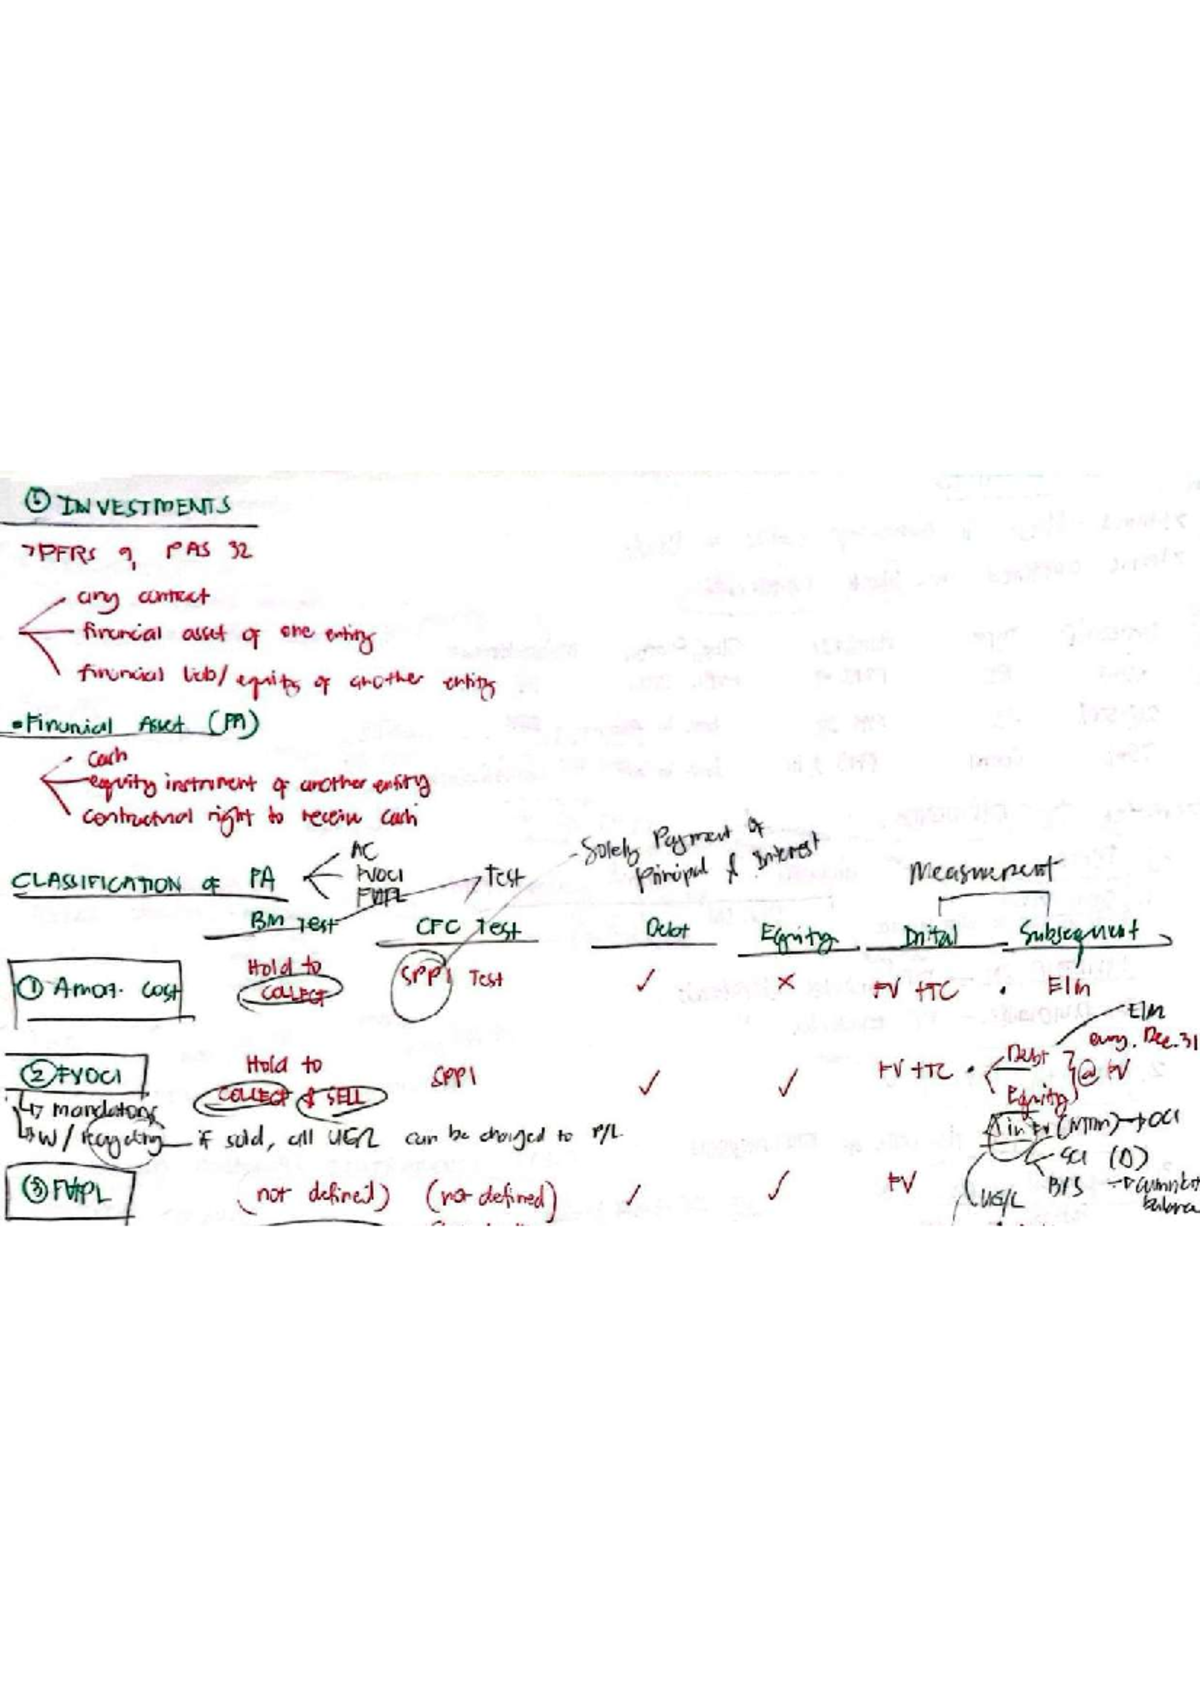 ① INVESTMENTS
> PFRS 9, PAS 32
any contract
financial asset of one entity
financial liab/ equity of another entity
• Financial Asset (FA)
cash
equity instrument of another entity
contractual right to receive cash
CLASSIFICATION of FA
AC
FVOCI
FVPL
Test
Solely Payment of
Principal & Interest
Measurement
BM Test CFC Test Debt Equity Initial Subsequent
① Amor. Cost Hold to COLLECT SPPI Test ✓ × FV + TC • EIM
② FVOCI Hold to COLLECT & SELL SPPI ✓ ✓ FV + TC • Debt Equity @ FV
EIM
every Dec. 31
↳ mandatory
↳ w/ recycling — if sold, all UG/L can be charged to P/L
Δ in FV (MTM) → OCI
SCI (Δ)
B/S →
UG/L
③ FVPL (not defined) (not defined) ✓ ✓ FV